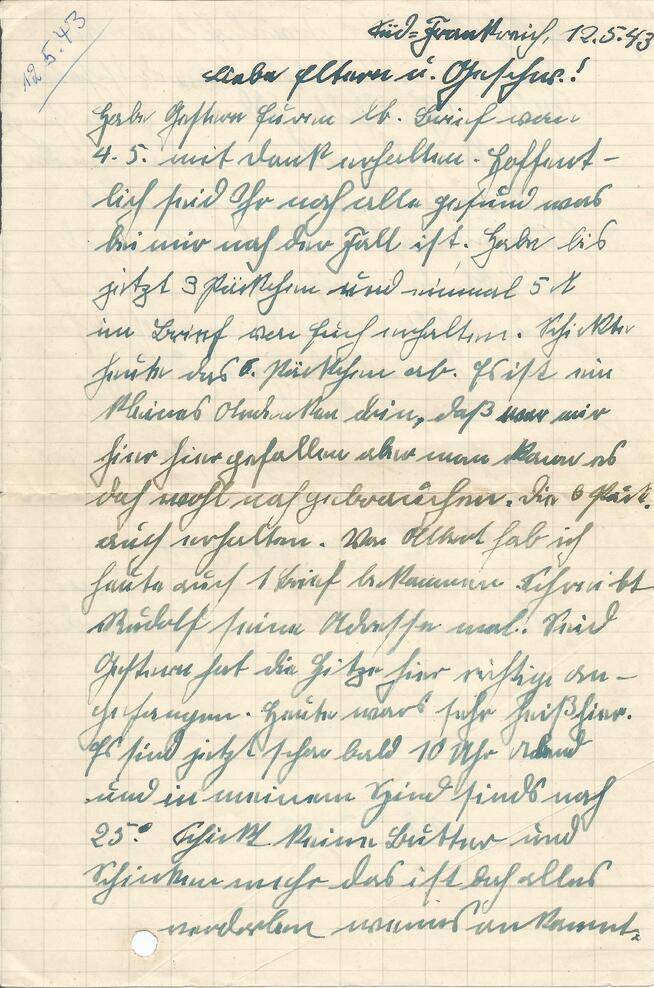 12.5.43
Süd-Frankreich, 12.5.43
Liebe Eltern u. Geschw.!
Habe Gestern Euren lb. Brief vom
4.5. mit dank erhalten. Hoffent-
lich seid Ihr noch alle gesund was
bei mir noch der Fall ist. Habe bis
jetzt 3 Päckchen und einmal 5 M
im Brief von Euch erhalten. Schickte
heute das 6. Päckchen ab. Es ist ein
kleines Andenken drin, daß war mir
hier hier gefallen aber man kann es
doch wohl noch gebrauchen. Die 6 Päck.
auch erhalten. Von Albert hab ich
heute auch 1 Brief bekommen. Schreibt
Rudolf seine Adresse mal. Seid
Gestern hat die Hitze hier richtig an-
gefangen. Heute wars sehr heiß hier.
Es sind jetzt schon bald 10 Uhr Abend
und in meinem Spind sinds noch
25° Schickt keine Butter und
Schinken mehr das ist doch alles
verdorben wenns ankommt.